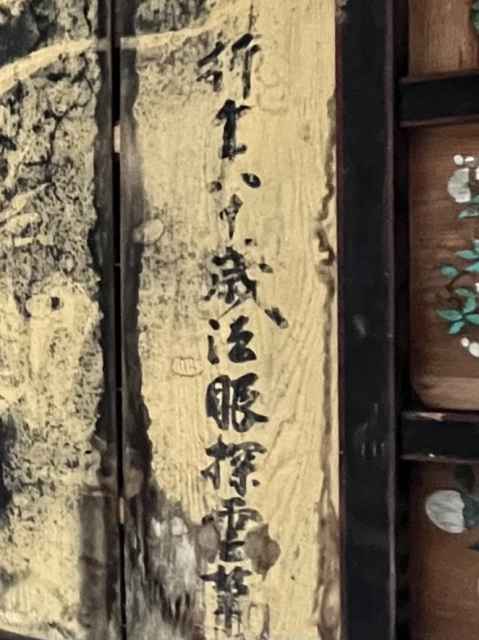 行年六十歳法眼探雲筆